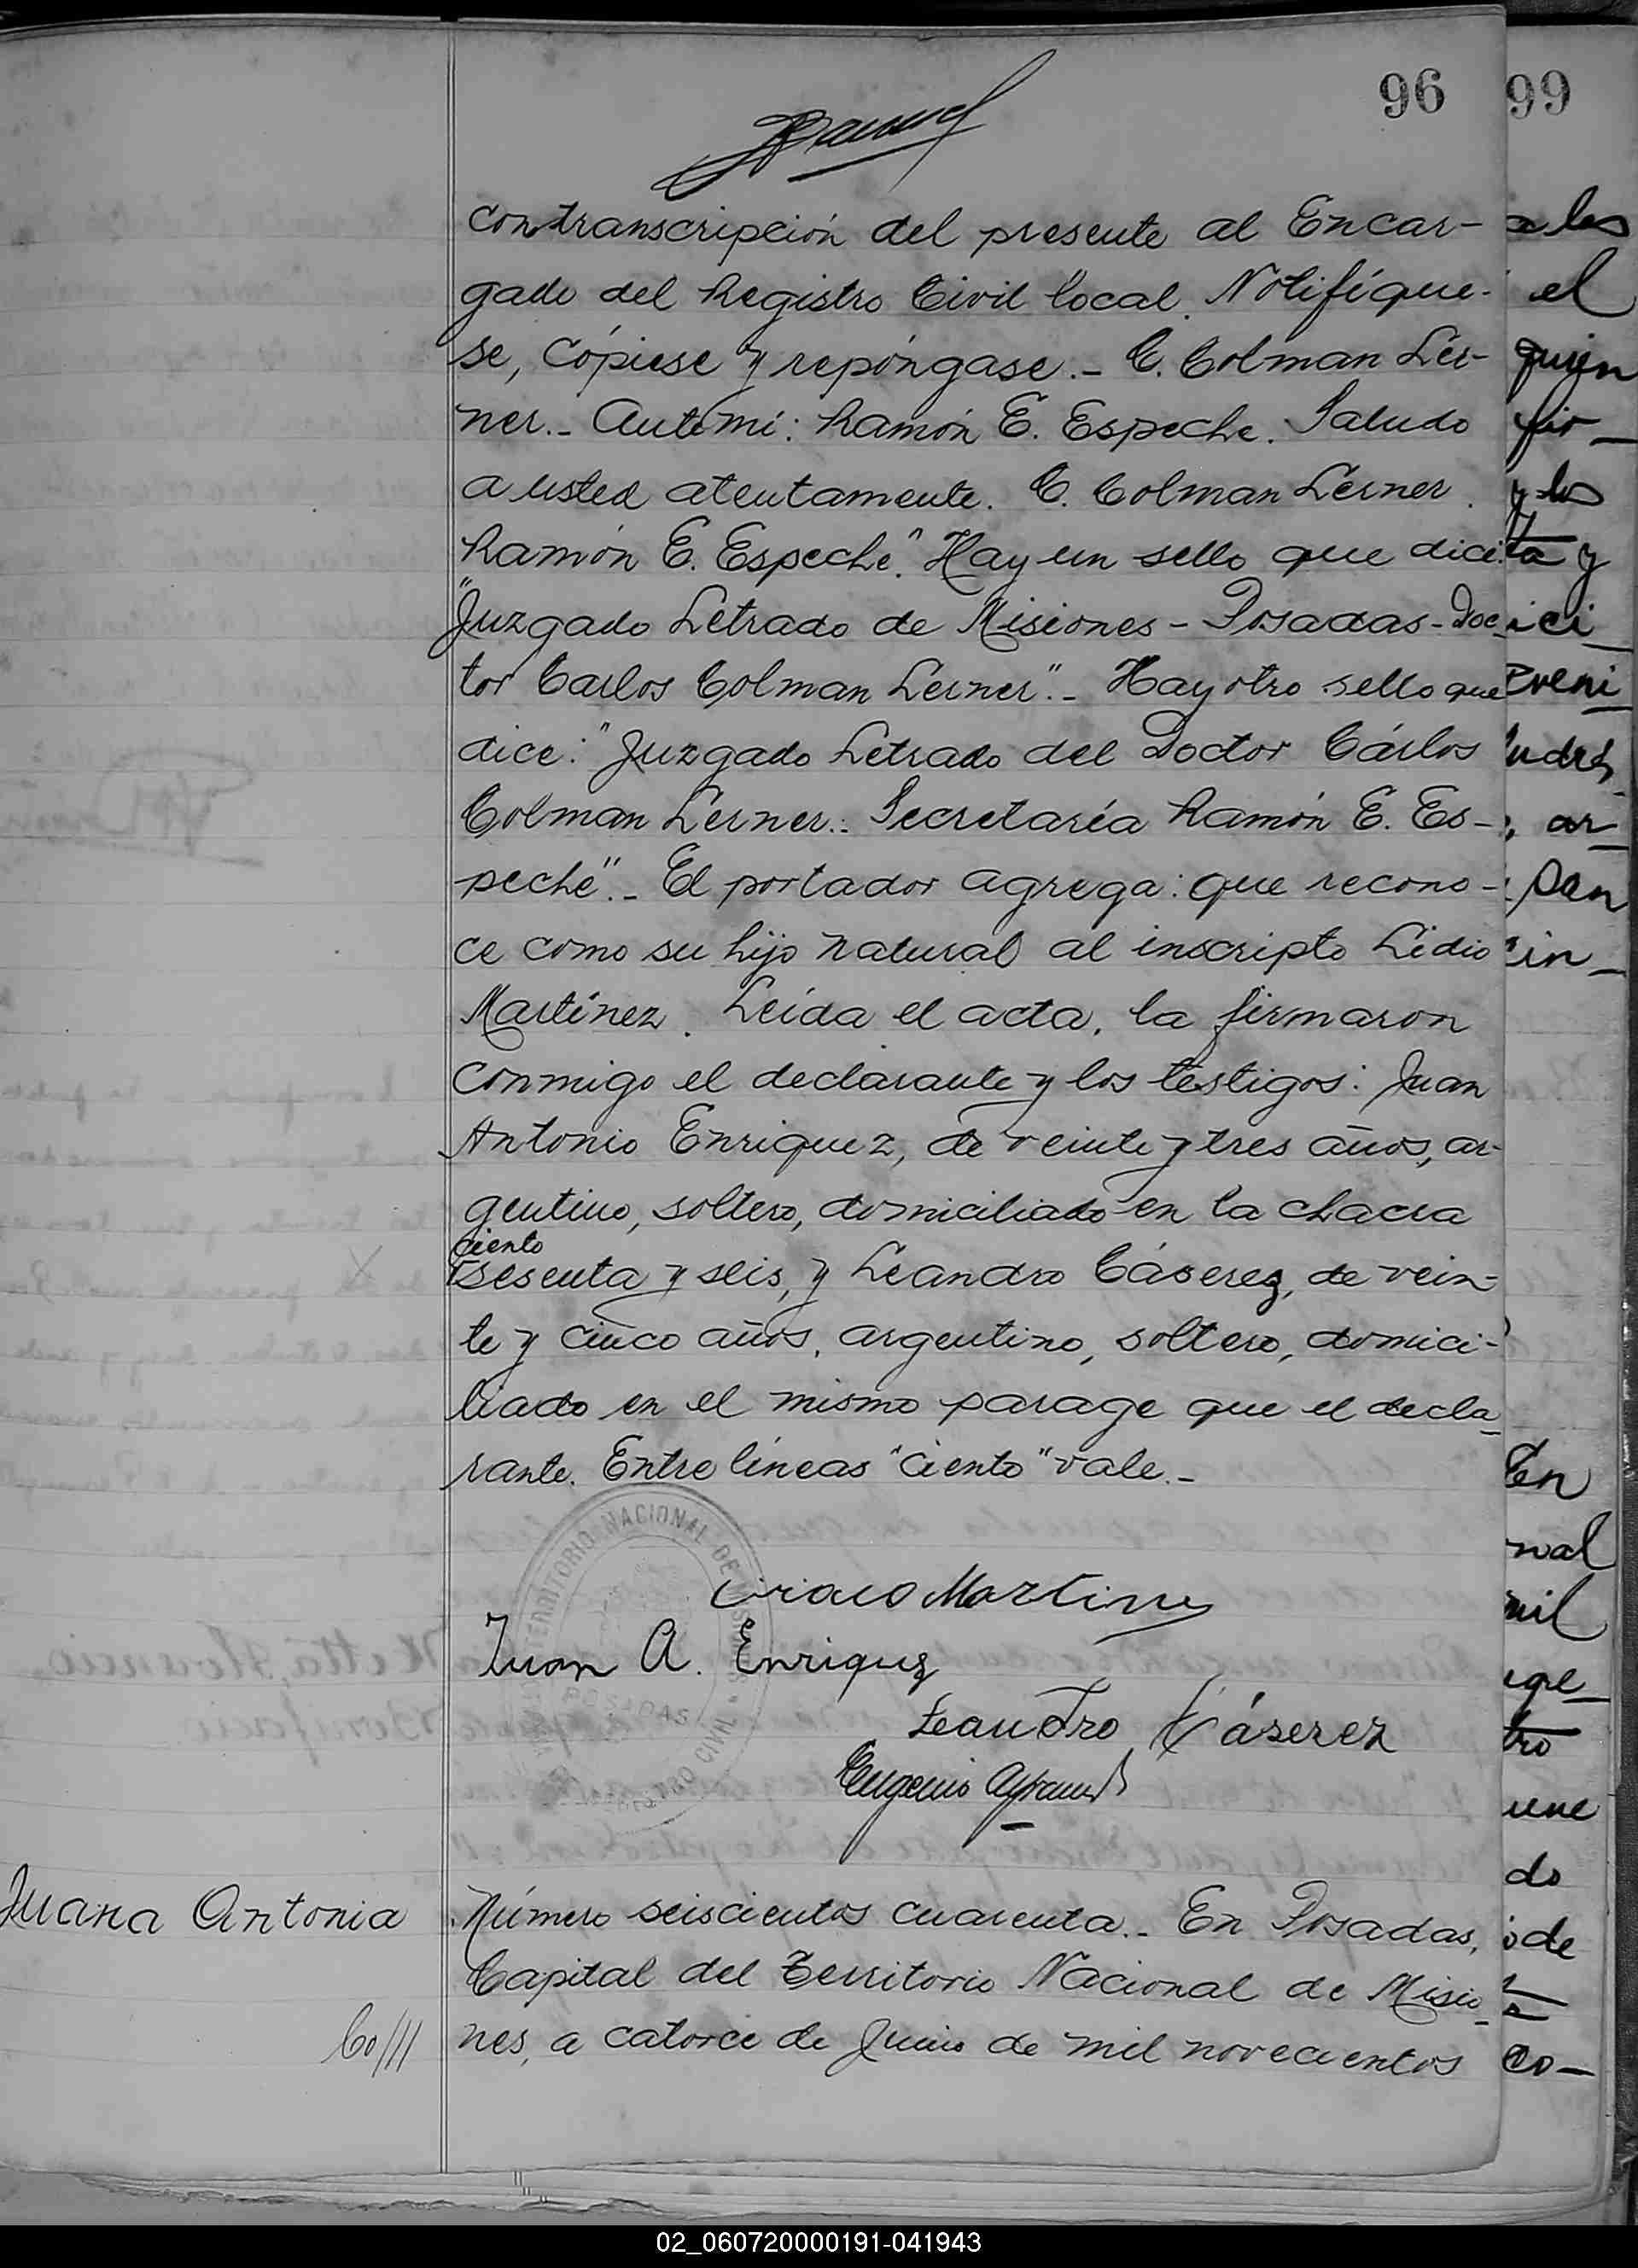 96
99
con transcripción del presente al Encar-
gado del Registro Civil local. Notifíque-
se, cópiese y repóngase.- C. Colman Ler-
ner.- Ante mí: Ramón E. Espeche. Saludo
a usted atentamente. C. Colman Lerner.
Ramón E. Espeche". Hay un sello que dice:
"Juzgado Letrado de Misiones - Posadas - Doc-
tor Carlos Colman Lerner".- Hay otro sello que
dice: "Juzgado Letrado del Doctor Cárlos
Colman Lerner.: Secretaría Ramón E. Es-
peche".- El portador agrega: que recono-
ce como su hijo natural al inscripto Lidio
Martínez. Leída el acta, la firmaron
conmigo el declarante y los testigos: Juan
Antonio Enriquez, de veinte y tres años, ar-
gentino, soltero, domiciliado en la chacra
ciento
sesenta y seis, y Leandro Cáserez, de vein-
te y cinco años, argentino, soltero, domici-
liado en el mismo parage que el decla-
rante. Entre líneas "ciento" vale.-
TERRITORIO NACIONAL DE MISIONES
POSADAS
REGISTRO CIVIL
Ciriaco Martinez
Juan A. Enriquez
Leandro Cáserez
Eugenio
Juana Antonia
Número seiscientos cuarenta.- En Posadas,
Capital del Territorio Nacional de Misio-
nes, a catorce de Junio de mil novecientos
a los
el
quien
fir-
y los
ta y
ici
veni
ar-
in-
En
nal
mil
tro
une
do
de
co-
02_060720000191-041943